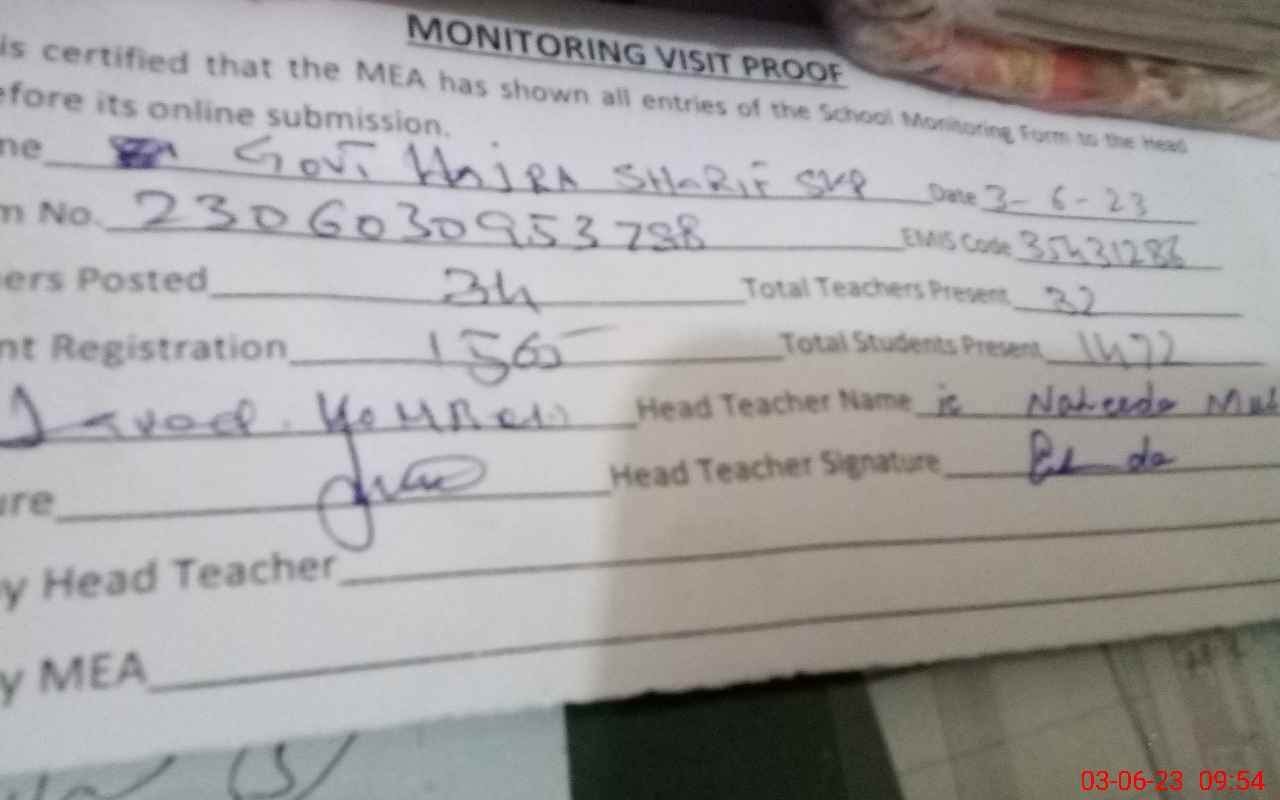 MONITORING VISIT PROOF
is certified that the MEA has shown all entries of the School Monitoring Form to the Head
efore its online submission.
me GOVT HAJRA SHARIF SKP Date 3-6-23
m No. 2306030953788 EMIS Code 35431286
ers Posted 34 Total Teachers Present 32
nt Registration 1565 Total Students Present 1472
Head Teacher Name Naheeda
ure Head Teacher Signature
y Head Teacher
y MEA
03-06-23 09:54